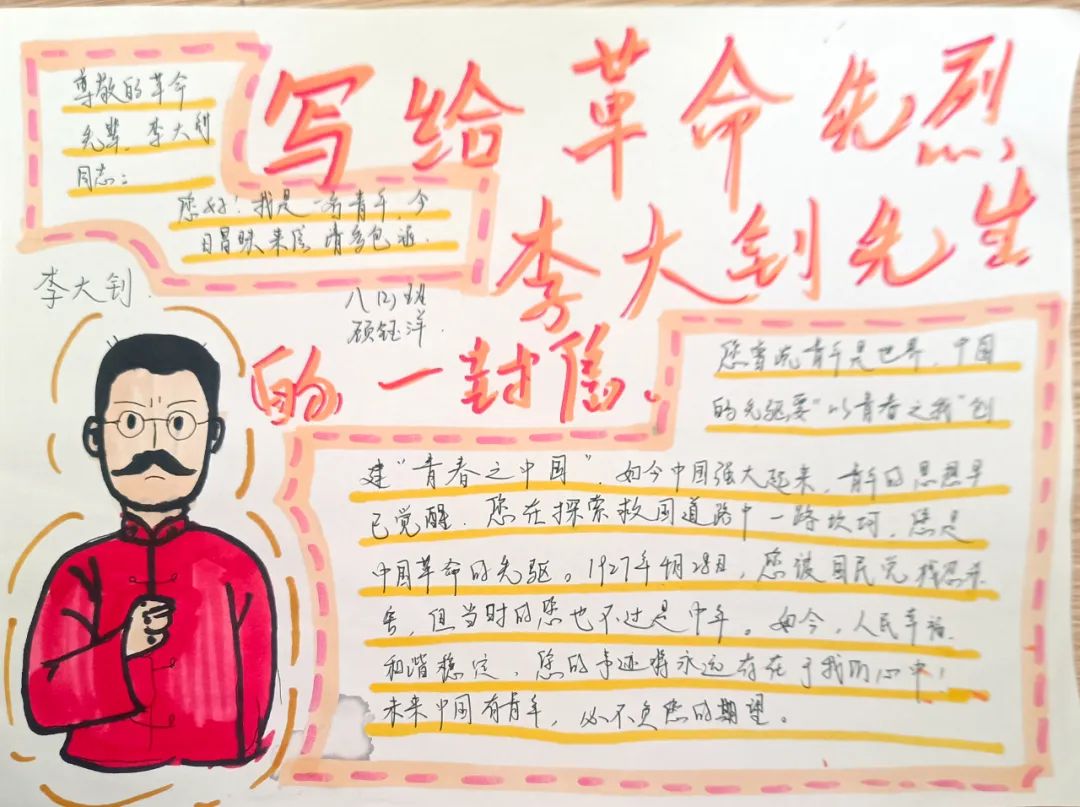 写给革命先烈
李大钊先生
的一封信.
尊敬的革命
先辈,李大钊
同志:
您好!我是一名青年,今
日冒昧来信 请多包涵.
李大钊.
八(2)班
顾钰洋.
您常说青年是世界,中国
的先驱要"以青春之我"创
建"青春之中国",如今中国强大起来,青年的思想早
已觉醒.您在探索救国道路中一路坎坷,您是
中国革命的先驱。1927年4月28日,您被国民党
害,但当时的您也不过是中年。如今,人民幸福,
和谐稳定,您的事迹将永远存在于我们心中,
未来中国有青年,必不负您的期望。